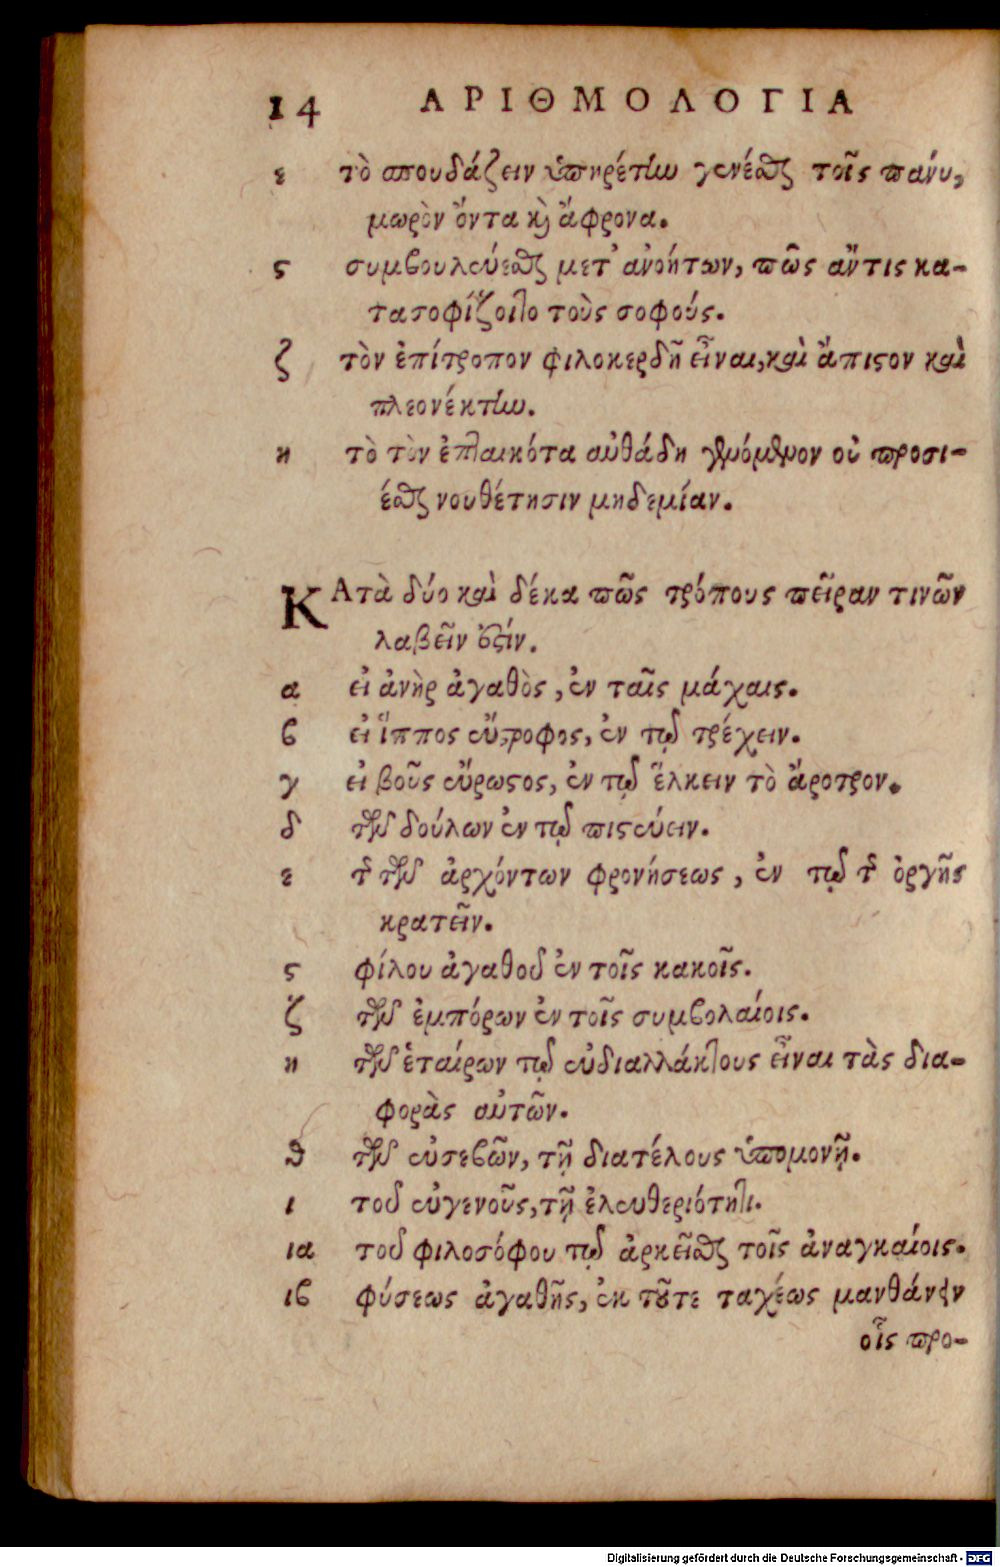 14 ΑΡΙΘΜΟΛΟΓΙΑ
ε τὸ σπουδάζειν ὑπηρέτην γενέσθαι τοῖς πάνυ,
μωρὸν ὄντα καὶ ἄφρονα.
ς συμβουλεύεσθαι μετ' ἀνοήτων, πῶς ἄντις κα-
τασοφίζοιτο τοὺς σοφούς.
ζ τὸν ἐπίτροπον φιλοκερδῆ εἶναι, καὶ ἄπιστον καὶ
πλεονέκτην.
η τὸ τὸν ἐπταικότα αὐθάδη γενόμενον οὐ προσι-
έσθαι νουθέτησιν μηδεμίαν.
ΚΑτὰ δύο καὶ δέκα πῶς τρόπους πεῖραν τινῶν
λαβεῖν ἐστίν.
α εἰ ἀνὴρ ἀγαθὸς, ἐν ταῖς μάχαις.
β εἰ ἵππος εὔτροφος, ἐν τῷ τρέχειν.
γ εἰ βοῦς εὔρωστος, ἐν τῷ ἕλκειν τὸ ἄροτρον.
δ τῶν δούλων ἐν τῷ πιστεύειν.
ε τῆς τῶν ἀρχόντων φρονήσεως, ἐν τῷ τῆς ὀργῆς
κρατεῖν.
ς φίλου ἀγαθοῦ ἐν τοῖς κακοῖς.
ζ τῶν ἐμπόρων ἐν τοῖς συμβολαίοις.
η τῶν ἑταίρων τῷ εὐδιαλλάκτους εἶναι τὰς δια-
φορὰς αὐτῶν.
θ τῶν εὐσεβῶν, τῇ διατέλους ὑπομονῇ.
ι τοῦ εὐγενοῦς, τῇ ἐλευθεριότητι.
ια τοῦ φιλοσόφου τῷ ἀρκεῖσθαι τοῖς ἀναγκαίοις.
ιβ φύσεως ἀγαθῆς, ἐκ τοῦτε ταχέως μανθάνειν
οἷς προ-
Digitalisierung gefördert durch die Deutsche Forschungsgemeinschaft - DFG